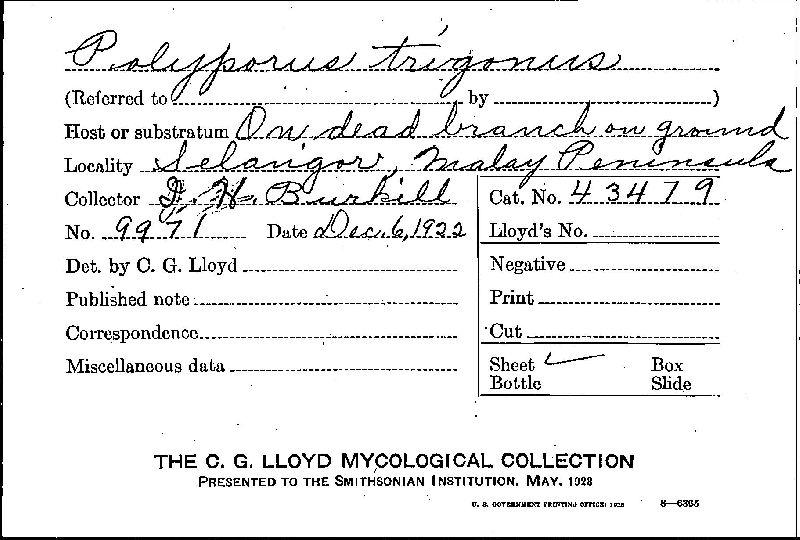 Polyporus trigonus
(Referred to by )
Host or substratum On dead branch on ground
Locality Selangor, Malay Peninsula
Collector I. H. Burkill
Cat. No. 43479
No. 9971 Date Dec. 6, 1922
Lloyd's No.
Det. by C. G. Lloyd
Negative
Published note
Print
Correspondence
Cut
Miscellaneous data
Sheet ✓ Box
Bottle Slide
THE C. G. LLOYD MYCOLOGICAL COLLECTION
PRESENTED TO THE SMITHSONIAN INSTITUTION, MAY, 1928
U. S. GOVERNMENT PRINTING OFFICE: 1928 8—6395